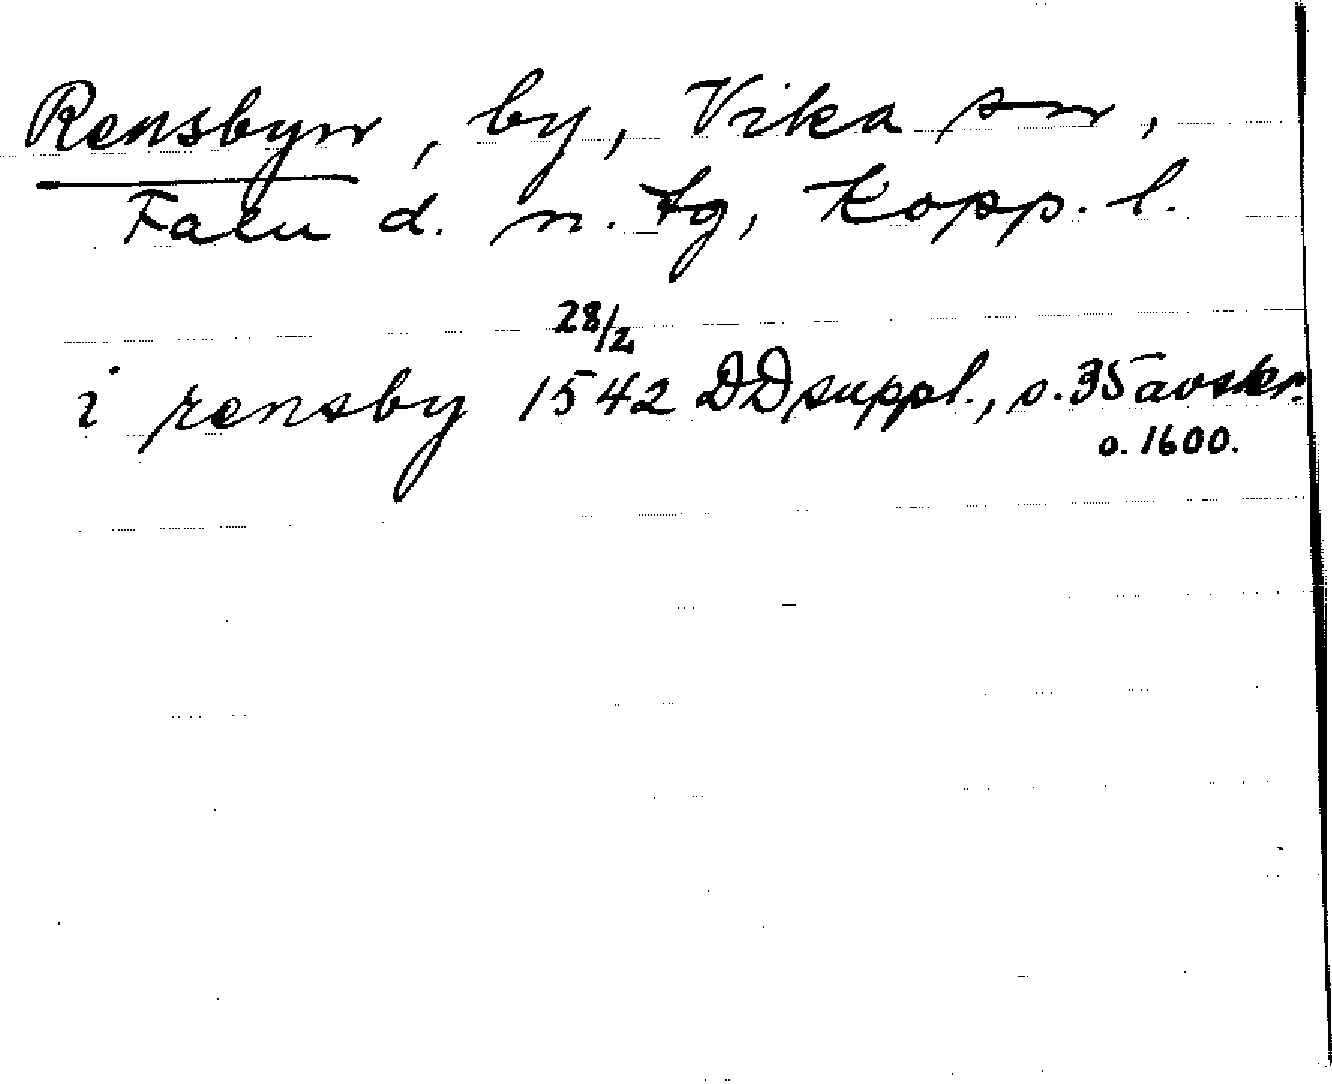 Rensbyn, by, Vika sn,
Falu d. n. tg, Kopp. l.
28/2
i rensby 1542 DDsuppl., s. 35 avskr.
o. 1600.